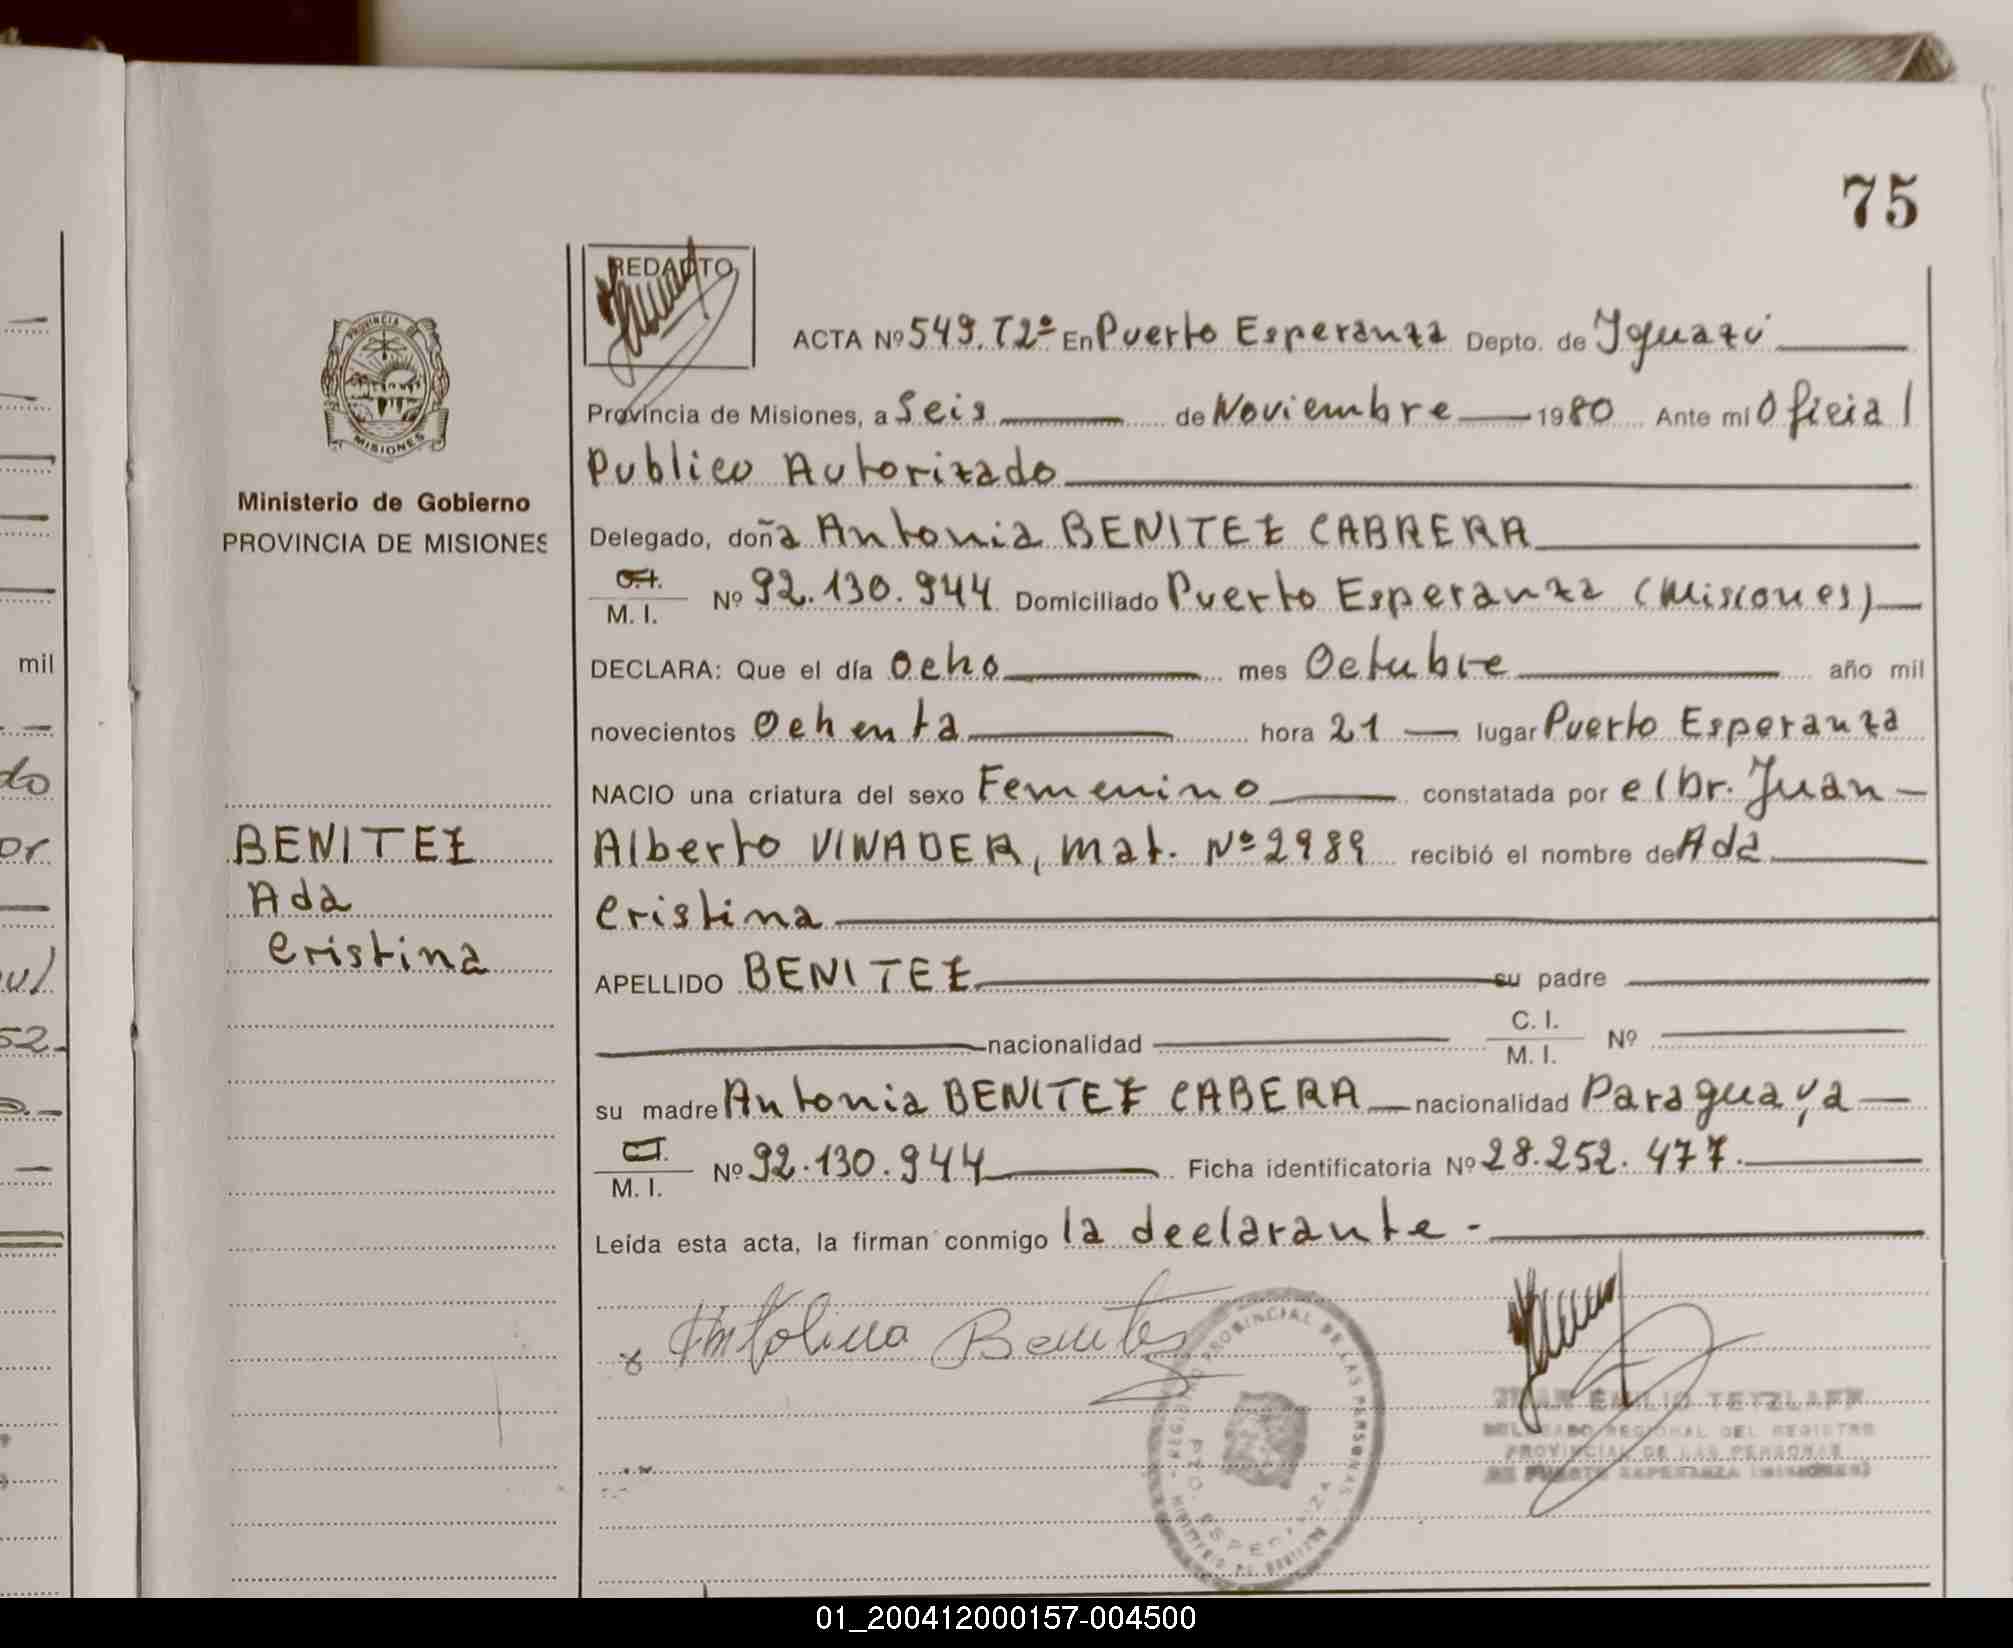 75
REDACTO
PROVINCIA DE
MISIONES
Ministerio de Gobierno
PROVINCIA DE MISIONES
ACTA Nº 549. T2º En Puerto Esperanza Depto. de Iguazú
Provincia de Misiones, a Seis de Noviembre 1980 Ante mí Oficial
Publico Autorizado
Delegado, doña Antonia BENITEZ CABRERA
C.I.
M. I. Nº 92.130.944 Domiciliado Puerto Esperanza (Misiones)
DECLARA: Que el día Ocho mes Octubre año mil
novecientos Ochenta hora 21 lugar Puerto Esperanza
NACIO una criatura del sexo Femenino constatada por el Dr. Juan
Alberto VINADER, mat. Nº 2989 recibió el nombre de Ada
Cristina
BENITEZ
Ada
Cristina
APELLIDO BENITEZ su padre
nacionalidad C. I. Nº
M. I.
su madre Antonia BENITEZ CABERA nacionalidad Paraguaya
C.I.
M. I. Nº 92.130.944 Ficha identificatoria Nº 28.252.477.
Leída esta acta, la firman conmigo la declarante -
Benitez
REGISTRO PROVINCIAL DE LAS PERSONAS
PTO. ESPERANZA
MINISTERIO DE GOBIERNO
JUAN EMILIO TETZLAFF
DELEGADO REGIONAL DEL REGISTRO
PROVINCIAL DE LAS PERSONAS
DE PUERTO ESPERANZA (MISIONES)
mil
do
or
ul
52
01_200412000157-004500